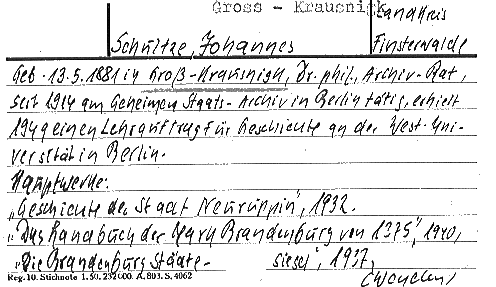 Gross - Krausnick
Landkreis
Schultze, Johannes Finsterwalde
Geb. 13.5.1881 in Groß-Krausnigk, Dr. phil., Archiv-Rat,
seit 1914 am Geheimen Staats-Archiv in Berlin tätig, erhielt
1949 einen Lehrauftrag für Geschichte an der West-Uni-
versität in Berlin.
Hauptwerke:
„Geschichte der Stadt Neuruppin", 1932.
„Das Landbuch der Mark Brandenburg von 1375", 1940,
„Die Brandenburg. Städte- siegel", 1937.
Reg. 10. Stichnote 1. 50. 232000. A. 803. S. 4062